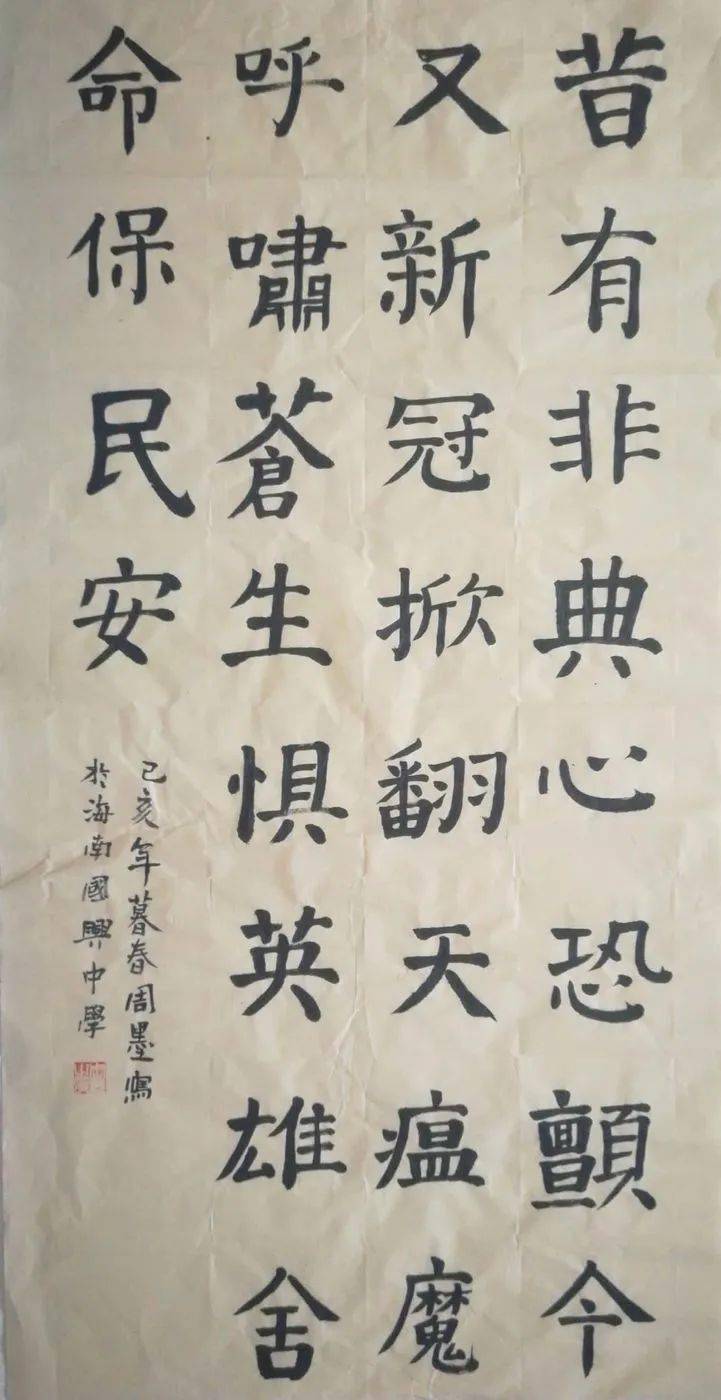 昔有非典心恐顫今
又新冠掀翻天瘟魔
呼嘯蒼生惧英雄舍
命保民安
己亥年暮春周墨寫
於海南國興中學